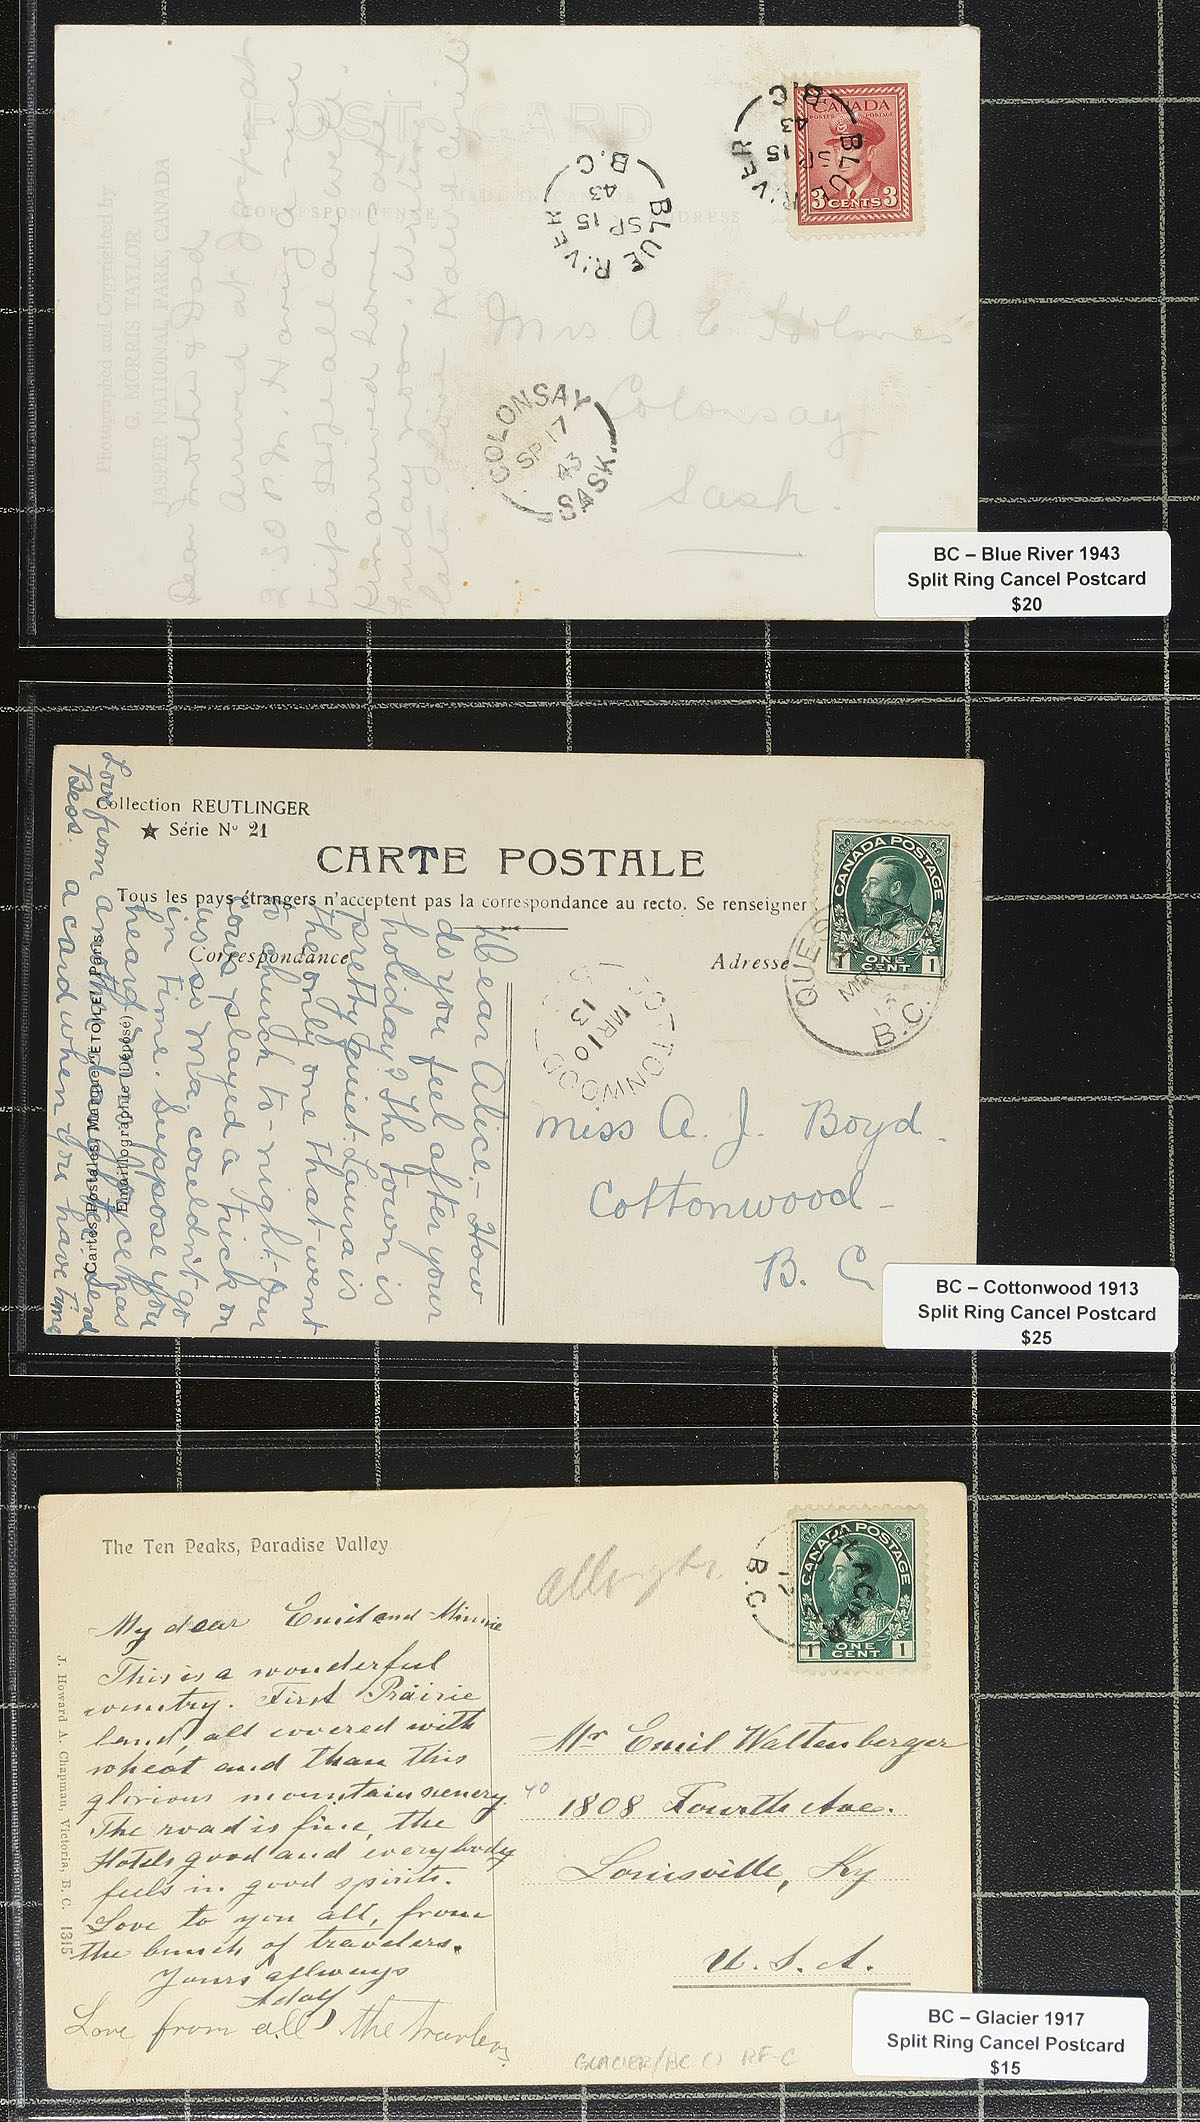 POST CARD
MADE IN CANADA
CORRESPONDENCE
ADDRESS
Photographed and Copyrighted by
G. MORRIS TAYLOR
JASPER NATIONAL PARK, CANADA
Dear Mother & Dad
Arrived at Jasper at
2:30 P.M. Having a nice
trip. Hope all are well.
arrived home
Sunday noon. Writing
later, love
CANADA
POSTES POSTAGE
3 CENTS 3
BLUE RIVER
SP 15
43
B.C
BLUE RIVER
SP 15
43
B.C
Mrs A. E Holmes
Colonsay
Sask.
COLONSAY
SP 17
43
SASK.
BC – Blue River 1943
Split Ring Cancel Postcard
$20
Collection REUTLINGER
★ Série No 21
CARTE POSTALE
Tous les pays étrangers n'acceptent pas la correspondance au recto. Se renseigner
Correspondance
Adresse
CANADA POSTAGE
1 ONE CENT 1
B.C.
COTTONWOOD
MR 10
13
Dear Alice.– How
do you feel after your
holiday? The town is
pretty quiet. Laura is
the only one that went
to church to-night. Our
cows played a trick on
us so Ma. couldn't go
in time. Suppose you
heard Joyce has
another daughter. Send
a card when you have time
Love from
Bess.
Cartes Postales Marque ETOILE Paris
Emaillographie (Déposé)
Miss A. J. Boyd.
Cottonwood –
B. C
BC – Cottonwood 1913
Split Ring Cancel Postcard
$25
The Ten Peaks, Paradise Valley
CANADA POSTAGE
1 ONE CENT 1
GLACIER
B.C
My dear Emil and Minnie
This is a wonderful
country. First Prairie
land, all covered with
wheat and than this
glorious mountain scenery.
The road is fine, the
Hotels good and everybody
feels in good spirits.
Love to you all, from
the bunch of travelers.
Yours allways
Adolf
Love from all the travlers.
J. Howard A. Chapman, Victoria, B. C. 1315
Mr Emil Waltenberger
40
1808 Fourth Ave.
Louisville, Ky
U. S. A.
GLACIER/BC () RF-C
BC – Glacier 1917
Split Ring Cancel Postcard
$15